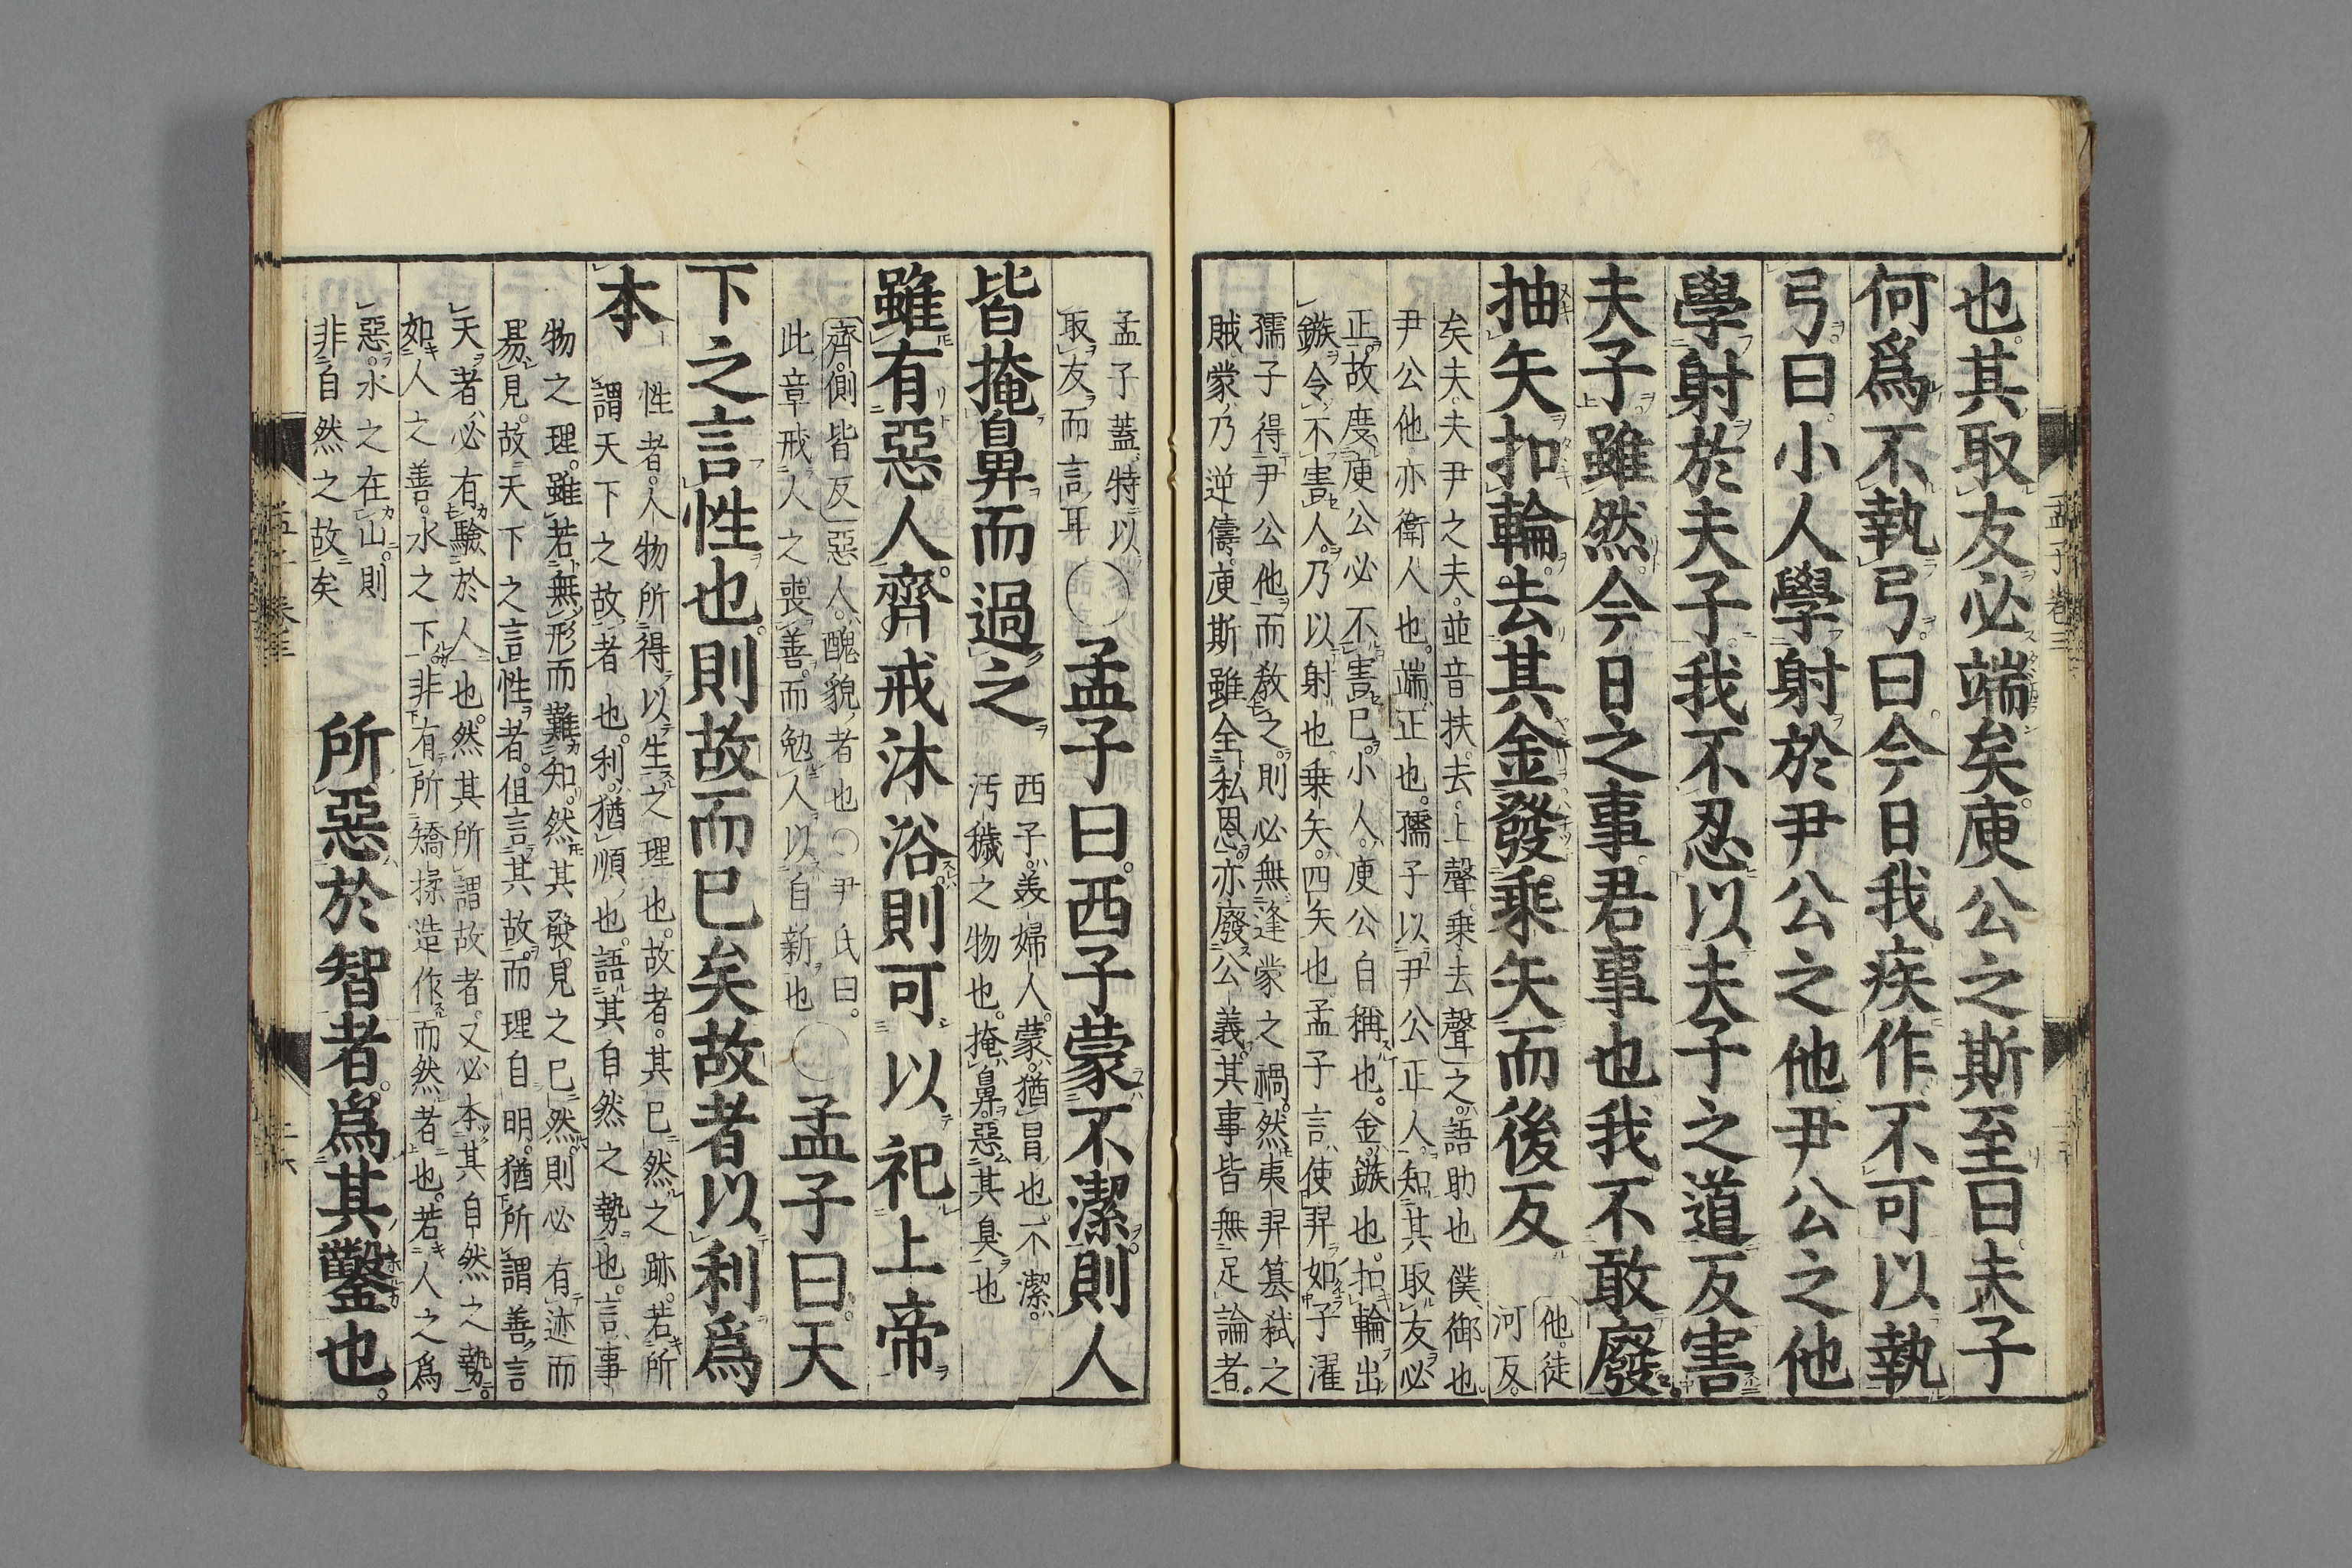 也其取友必端矣庾公之斯至曰夫子
何爲不執弓曰今日我疾作不可以執
弓曰小人學射於尹公之他尹公之他
學射於夫子我不忍以夫子之道反害
夫子雖然今日之事君事也我不敢廢
抽矢扣輪去其金發乘矢而後反
他徒
河反
矣夫夫尹之夫並音扶去上聲乘去聲之語助也僕御也
尹公他亦衛人也端正也孺子以尹公正人知其取友必
正故度庾公必不害已小人庾公自稱也金鏃也扣輪出
鏃令不害人乃以射也乘矢四矢也孟子言使羿如子濯
孺子得尹公他而教之則必無逢蒙之禍然夷羿篡弑之
賊蒙乃逆儔庾斯雖全私恩亦廢公義其事皆無足論者
孟子蓋特以
取友而言耳
〇孟子曰西子蒙不潔則人
皆掩鼻而過之
西子美婦人蒙猶冒也不潔
汚穢之物也掩鼻惡其臭也
雖有惡人齊戒沐浴則可以祀上帝
齊側皆反惡人醜貌者也〇尹氏曰
此章戒人之喪善而勉人以自新也
〇孟子曰天
下之言性也則故而已矣故者以利爲
本
性者人物所得以生之理也故者其已然之跡若所
謂天下之故者也利猶順也語其自然之勢也言事
物之理雖若無形而難知然其發見之已然則必有迹而
易見故天下之言性者但言其故而理自明猶所謂善言
天者必有驗於人也然其所謂故者又必本其自然之勢
如人之善水之下非有所矯揉造作而然者也若人之爲
惡水之在山則
非自然之故矣
所惡於智者爲其鑿也
孟子卷三